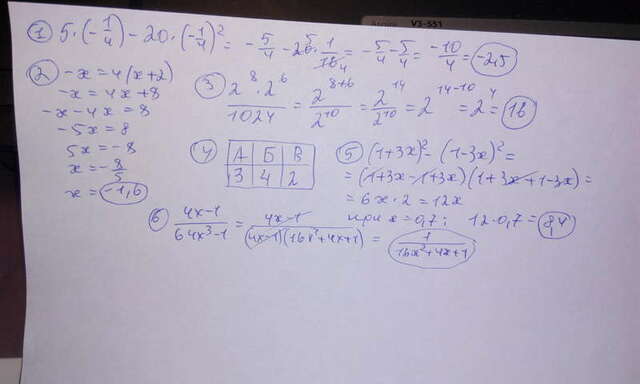 V3-551
① 5·(-1/4) - 20·(-1/4)² = -5/4 - 20·1/16 = -5/4 - 5/4 = -10/4 = -2,5
② -x = 4(x+2)
-x = 4x+8
-x-4x = 8
-5x = 8
5x = -8
x = -8/5
x = -1,6
③ 2⁸·2⁶/1024 = 2⁸⁺⁶/2¹⁰ = 2¹⁴/2¹⁰ = 2¹⁴⁻¹⁰ = 2⁴ = 16
④ А Б В
3 4 2
⑤ (1+3x)² - (1-3x)² =
= (1+3x-1+3x)(1+3x+1-3x) =
= 6x·2 = 12x
при x = 0,7; 12·0,7 = 8,4
⑥ 4x-1/64x³-1 = 4x-1/(4x-1)(16x²+4x+1) = 1/16x²+4x+1